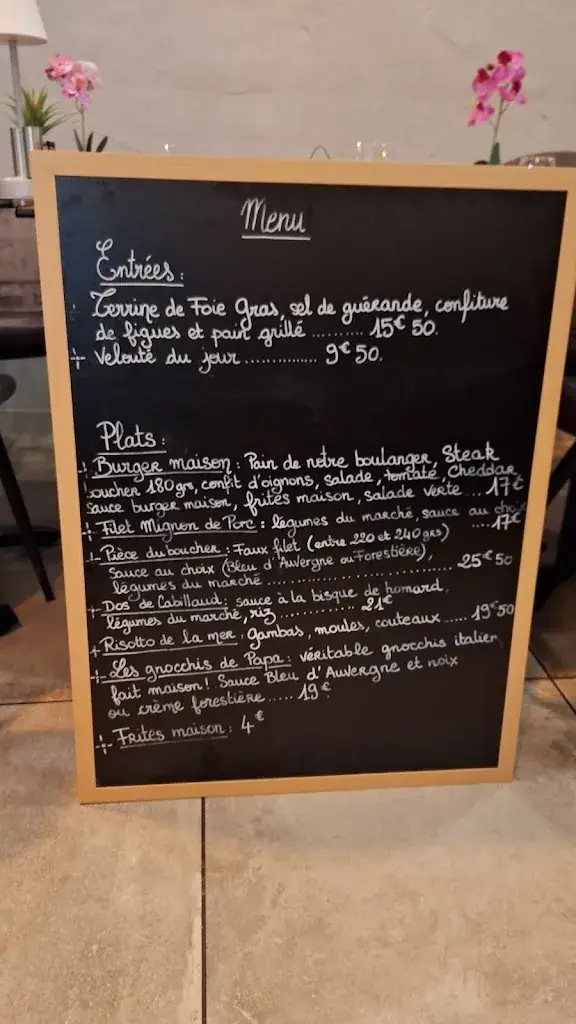 Menu
Entrées :
Terrine de Foie Gras, sel de guérande, confiture
de figues et pain grillé .......... 15€ 50.
+ Velouté du jour .............. 9€ 50.
Plats :
+ Burger maison : Pain de notre boulanger, Steak
boucher 180grs, confit d'oignons, salade, tomate, Cheddar,
sauce burger maison, frites maison, salade verte ... 17€
+ Filet Mignon de Porc : légumes du marché, sauce au choix
.... 17€
+ Pièce du boucher : Faux filet (entre 220 et 240grs)
Sauce au choix (Bleu d'Auvergne ou Forestière),
légumes du marché .............................. 25€50
+ Dos de Cabillaud : sauce à la bisque de homard,
légumes du marché, riz ............ 21€
+ Risotto de la mer : gambas, moules, couteaux ..... 19€50
+ Les gnocchis de Papa : véritable gnocchis italien
fait maison! Sauce Bleu d'Auvergne et noix
ou crème forestière ..... 19€
+ Frites maison : 4€